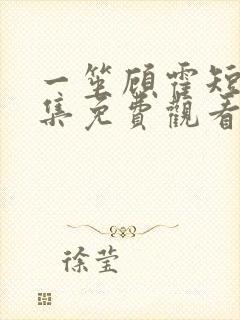 一笙顾霍短
集免費觀看
徐莹